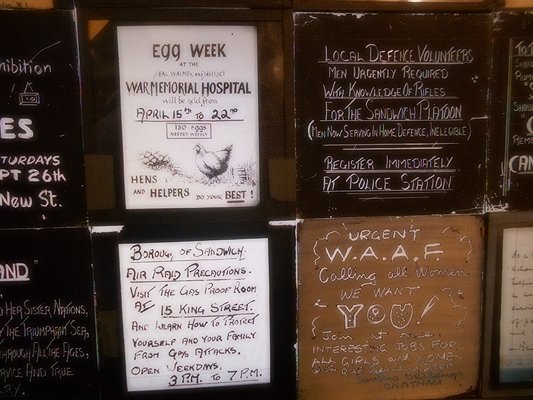 EGG WEEK
AT THE
DEAL, WALMER, AND DISTRICT
WAR MEMORIAL HOSPITAL
will be held from
APRIL 15TH TO 22ND
150 EGGS
NEEDED WEEKLY
HENS
AND HELPERS DO YOUR BEST!
LOCAL DEFENCE VOLUNTEERS
MEN URGENTLY REQUIRED
WITH KNOWLEDGE OF RIFLES
FOR THE SANDWICH PLATOON
(MEN NOW SERVING IN HOME DEFENCE, INELLIGIBLE)
REGISTER IMMEDIATELY
AT POLICE STATION
hibition
ES
ATURDAYS
PT 26TH
NEW ST.
BOROUGH OF SANDWICH.
AIR RAID PRECAUTIONS.
VISIT THE GAS PROOF ROOM
AT 15 KING STREET.
AND LEARN HOW TO PROTECT
YOURSELF AND YOUR FAMILY
FROM GAS ATTACKS.
OPEN WEEKDAYS.
3 P.M. TO 7 P.M.
URGENT
W.A.A.F.
Calling all Women
WE WANT
YOU!
Join at once
INTERESTING JOBS FOR
ALL GIRLS and WOMEN
CHATHAM
AND
HER SISTER NATIONS,
THE TRIUMPHANT SEA,
THROUGH ALL THE AGES,
SERVICE AND TRUE